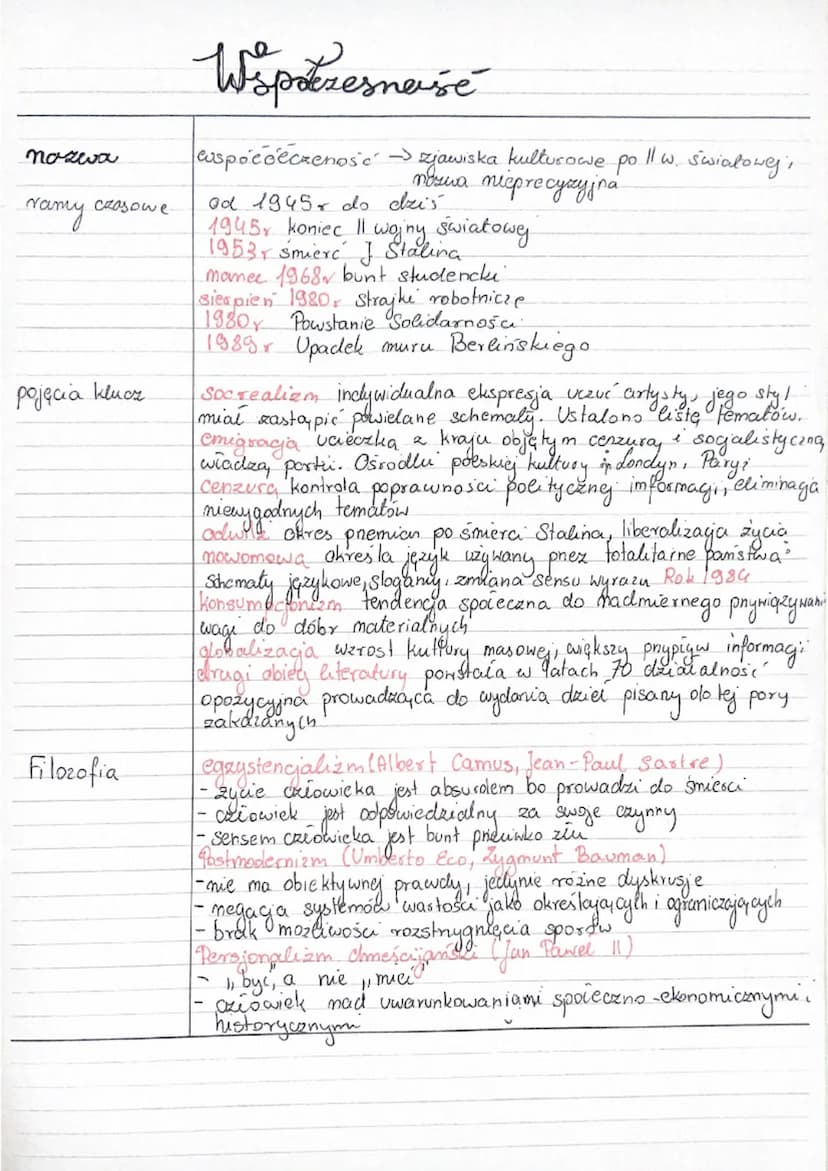 Współczesność
nazwa
współcećczeność → zjawiska kulturowe po II w. światowej,
nazwa nieprecyzyjna
ramy czasowe
od 1945r do dziś
1945r koniec II wojny światowej
1953r śmierć J Stalina
marzec 1968r bunt studencki
sierpień 1980r Strajki robotnicze
1980r Powstanie Solidarności
1989r Upadek muru Berlińskiego
pojęcia klucz
socrealizm indywidualna ekspresja uczuć artysty, jego styl
miał zastąpić powielane schematy. Ustalono listę tematów.
emigracja ucieczka z kraju objętym cenzurą i socjalistyczną
władzą partii. Ośrodki polskiej kultury Londyn, Paryż
Cenzura kontrola poprawności politycznej informacji, eliminacja
niewygodnych tematów
odwilż okres przemian po śmierci Stalina, liberalizacja życia
nowomowa określa język używany przez totalitarne państwa:
Schematy językowe, slogany, zmiana sensu wyrazu Rok 1984
Konsumpcjonizm tendencja społeczna do nadmiernego przywiązywani
wagi do dóbr materialnych
globalizacja wzrost kultury masowej, większy przypływ informacji
drugi obieg literatury powstała w latach 70 działalność
opozycyjna prowadząca do wydania dzieł pisany do tej pory
zakazanych
Filozofia
egzystencjalizm (Albert Camus, Jean-Paul Sastre)
- życie człowieka jest absurdem bo prowadzi do śmierci
- człowiek jest odpowiedzialny za swoje czynny
- Sensem człowieka jest bunt przeciwko złu
Postmodernizm (Umberto Eco, Zygmunt Bauman)
- nie ma obiektywnej prawdy, jedynie różne dyskrusje
- negacja systemów wartości jako określających i ograniczających
- brak możliwości rozstrzygnięcia sporów
Personalizm chrześcijański (Jan Paweł II)
- „być", a nie „mieć"
- człowiek nad uwarunkowaniami społeczno-ekonomicznymi i
historycznymi